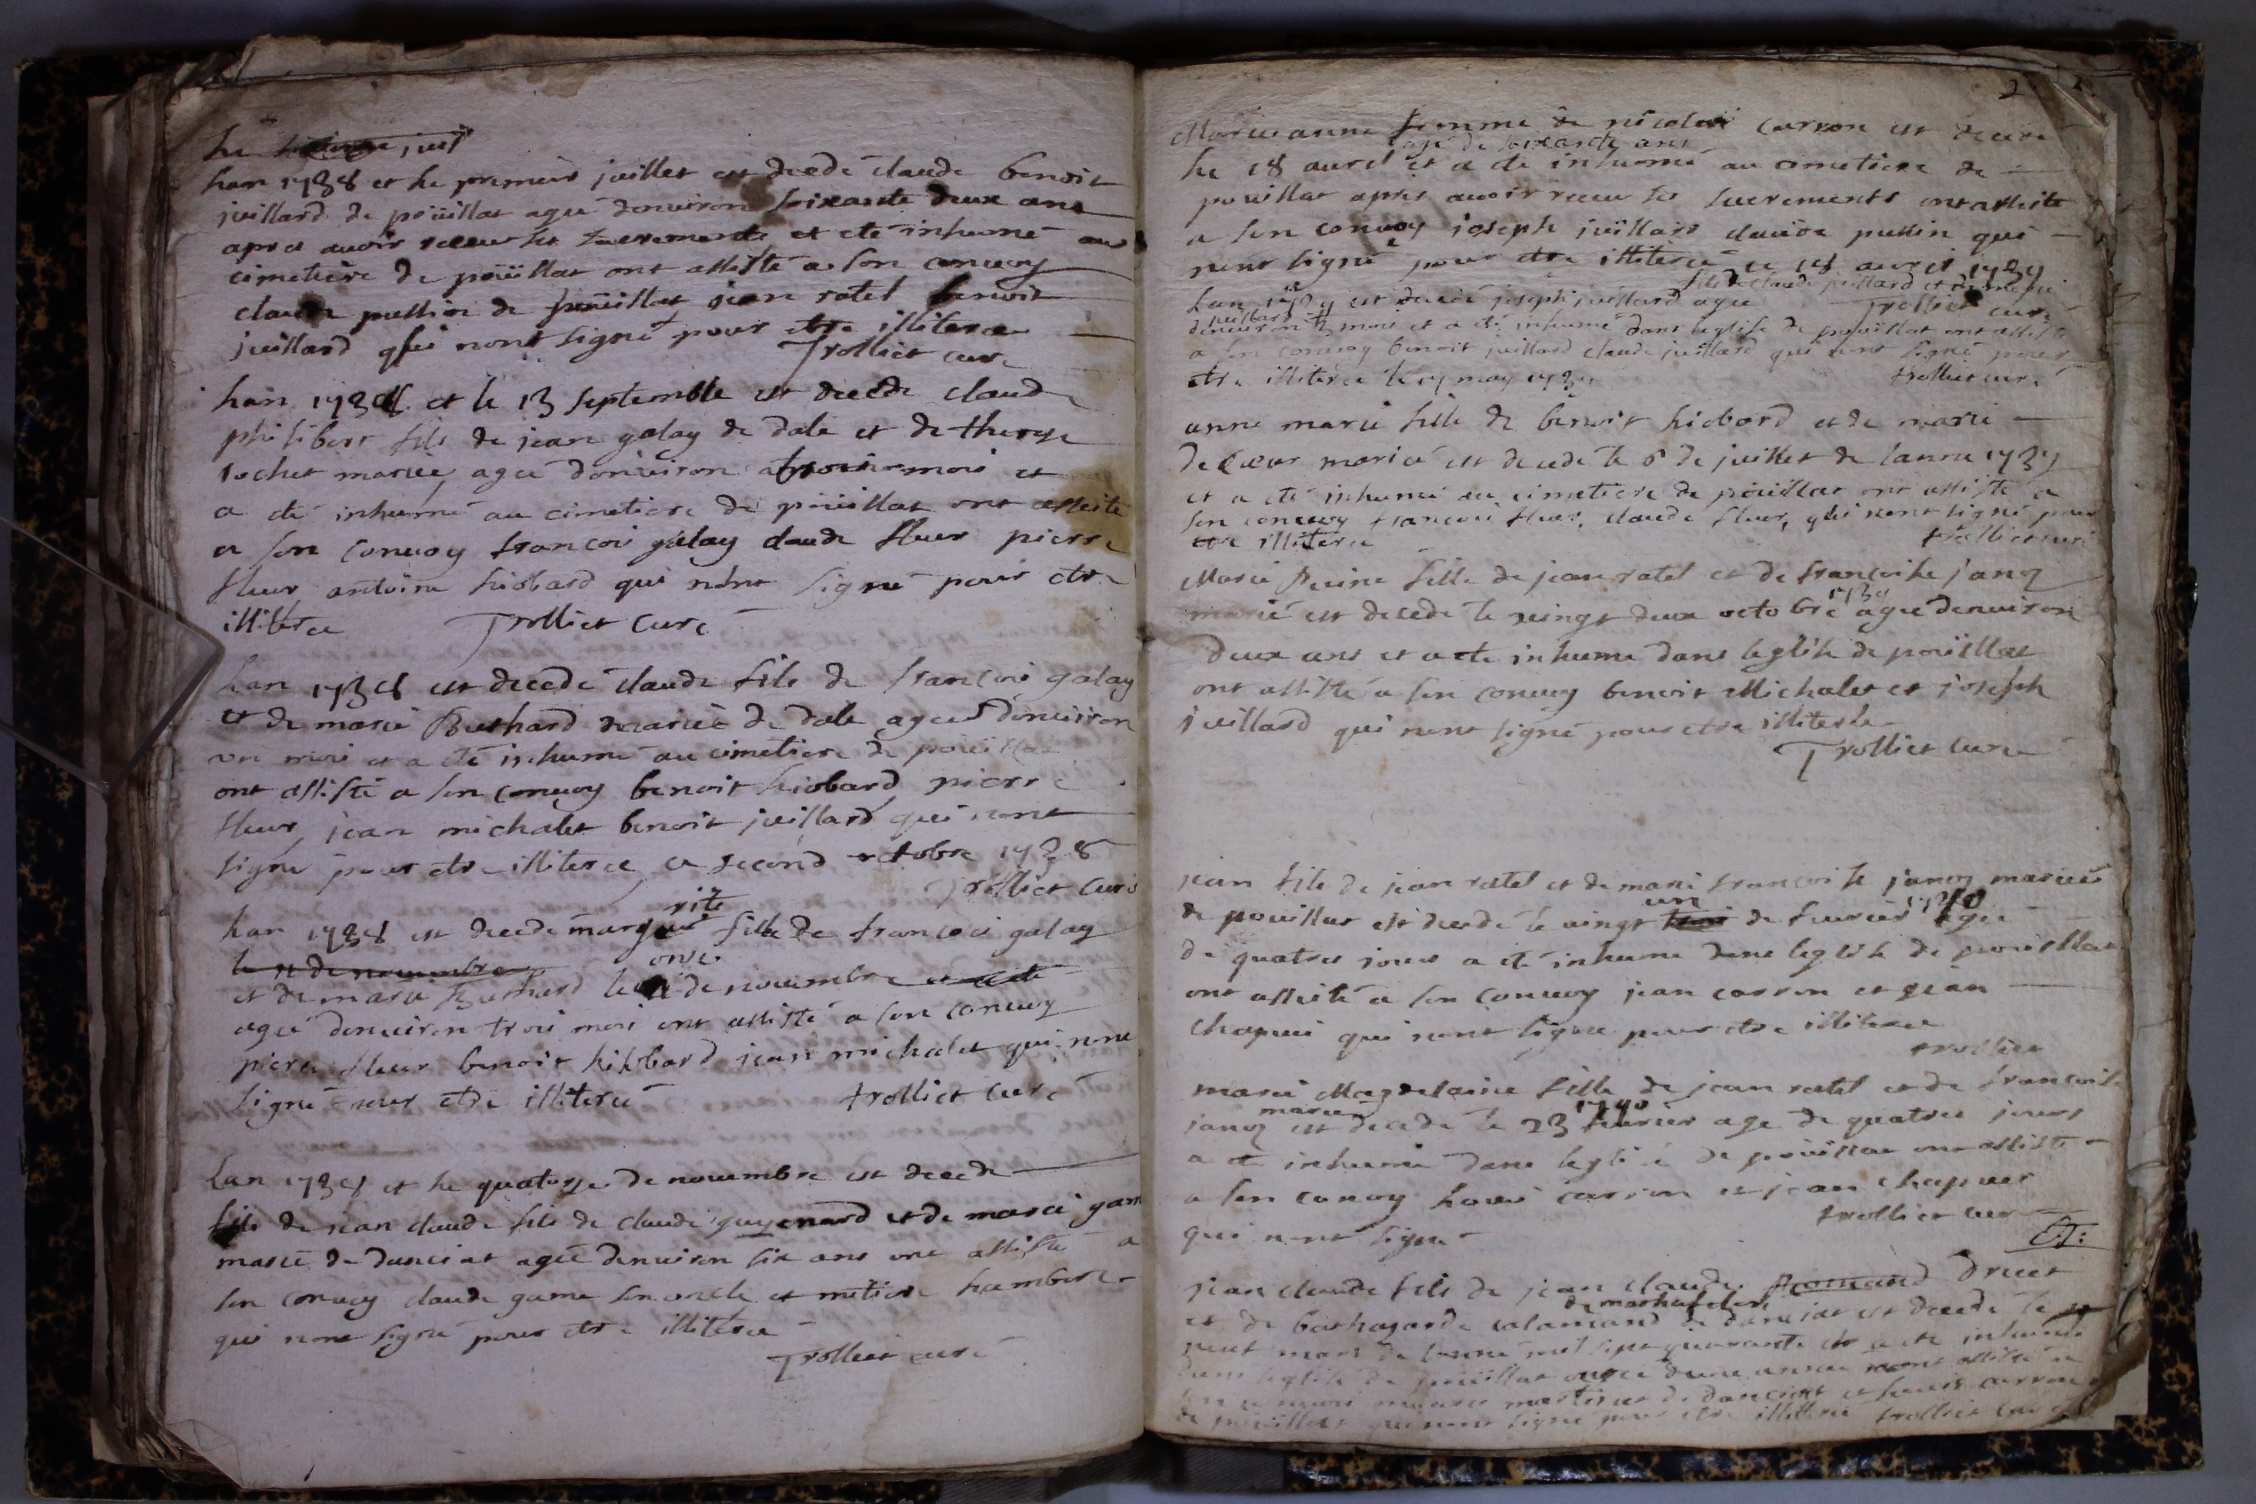 han 1738 et he premier juillet est decede claude benoit
juillard de poüillat agée denviron soixante deux ans
apres avoir receu ses sacrements et eté inhumé au
cimetiere de poüillat ont assisté a son convoy
claude pussin de poüillat jean ratel benoit
juillard qui nont signé pour etre illiteree
Trolliet curé
han 1738 et le 13 septembre est decede claude
philibert fils de jean galay de dale et de therese
sochet mariee agee denviron mois et
a eté inhumé au cimetiere de poüillat ont assisté
a son convoy francois galay claude fleur pierre
fleur antoine hiobard qui nont signé pour etre
illiteree Trolliet curé
han 1738 est decedé claude fils de francois galay
et de marie Buthard mariée de dale agee denviron
un mois et a eté inhumé au cimetiere de poüillat
ont assisté a son convoy benoit hiobard pierre
fleur jean michalet benoit juillard qui nont
signé pour etre illiteree ce second octobre 1738
Trolliet curé
han 1738 est decede marguerite fille de francois galay
le 11 de novembre
et de marie Buthard le onse de novembre et a eté
agée denviron trois mois ont assisté a son convoy
piere fleur benoit hiobard jean michalet qui nont
signé pour etre illiteree trolliet curé
lan 1738 et he quatorse de novembre est decede
fils de jean claude fils de claude guyenard et de marie gam
marié de danciat agée denviron six ans ont assisté a
son convoy claude game son oncle et humbert
qui nont signé pour etre illiteree
Trolliet curé
2
Marie anne femme de nicolas carron est decede
agé de soixante ans
he 18 avril et a eté inhumé au cimetiere de
poüillat apres avoir receu ses sacrements ont assisté
a son convoy joseph juillard claude pussin qui
nont signé pour etre illiteree ce 18 avril 1739
fils de claude juillard et
Trolliet curé
han 1739 est decedé joseph juillard agee
denviron mois et a eté inhumé dans leglise de poüillat ont assisté
a son convoy benoit juillard claude juillard qui nont signé pour
etre illiteree le may 1739 trolliet curé
anne marie fille de benoit hiobard et de marie
de mariée est decede le 6 de juillet de lanné 1739
et a eté inhumé au cimetiere de poüillat ont assisté a
son convoy francois fleur, claude fleur, qui nont signé pour
etre illiteree trolliet curé
Marie fille de jean ratel et de francoise janoy
marié est decede le vingt deux octobre 1739 agee denviron
deux ans et a eté inhume dans leglise de poüillat
ont assisté a son convoy benoit Michalet et joseph
juillard qui nont signé pour etre illiteree
Trolliet curé
jean fils de jean ratel et de marie francoise janoy mariés
de pouillat est decede le vingt un de fevrier 1740 agee
de quatres jours a eté inhume dans leglise de pouillat
ont assisté a son convoy jean carron et jean
chapuis qui nont signe pour etre illiteree
trolliet
marie Magdelaine fille de jean ratel et de francoise
janoy mariés est decede le 23 fevrier 1740 age de quatres jours
a eté inhumé dans leglise de poüillat ont assisté
a son convoy houis carron et jean chapuis
trolliet curé
qui nont signe
jean claude fils de jean claude druet
et de calamand de danciat est decede le
neuf mars de lanné mil sept quarante et a eté inhumé
dans leglise de poüillat agée dune année ont assisté a
son convoy de danciat et houis carron
de poüillat qui nont signé pour etre illiteree trolliet curé